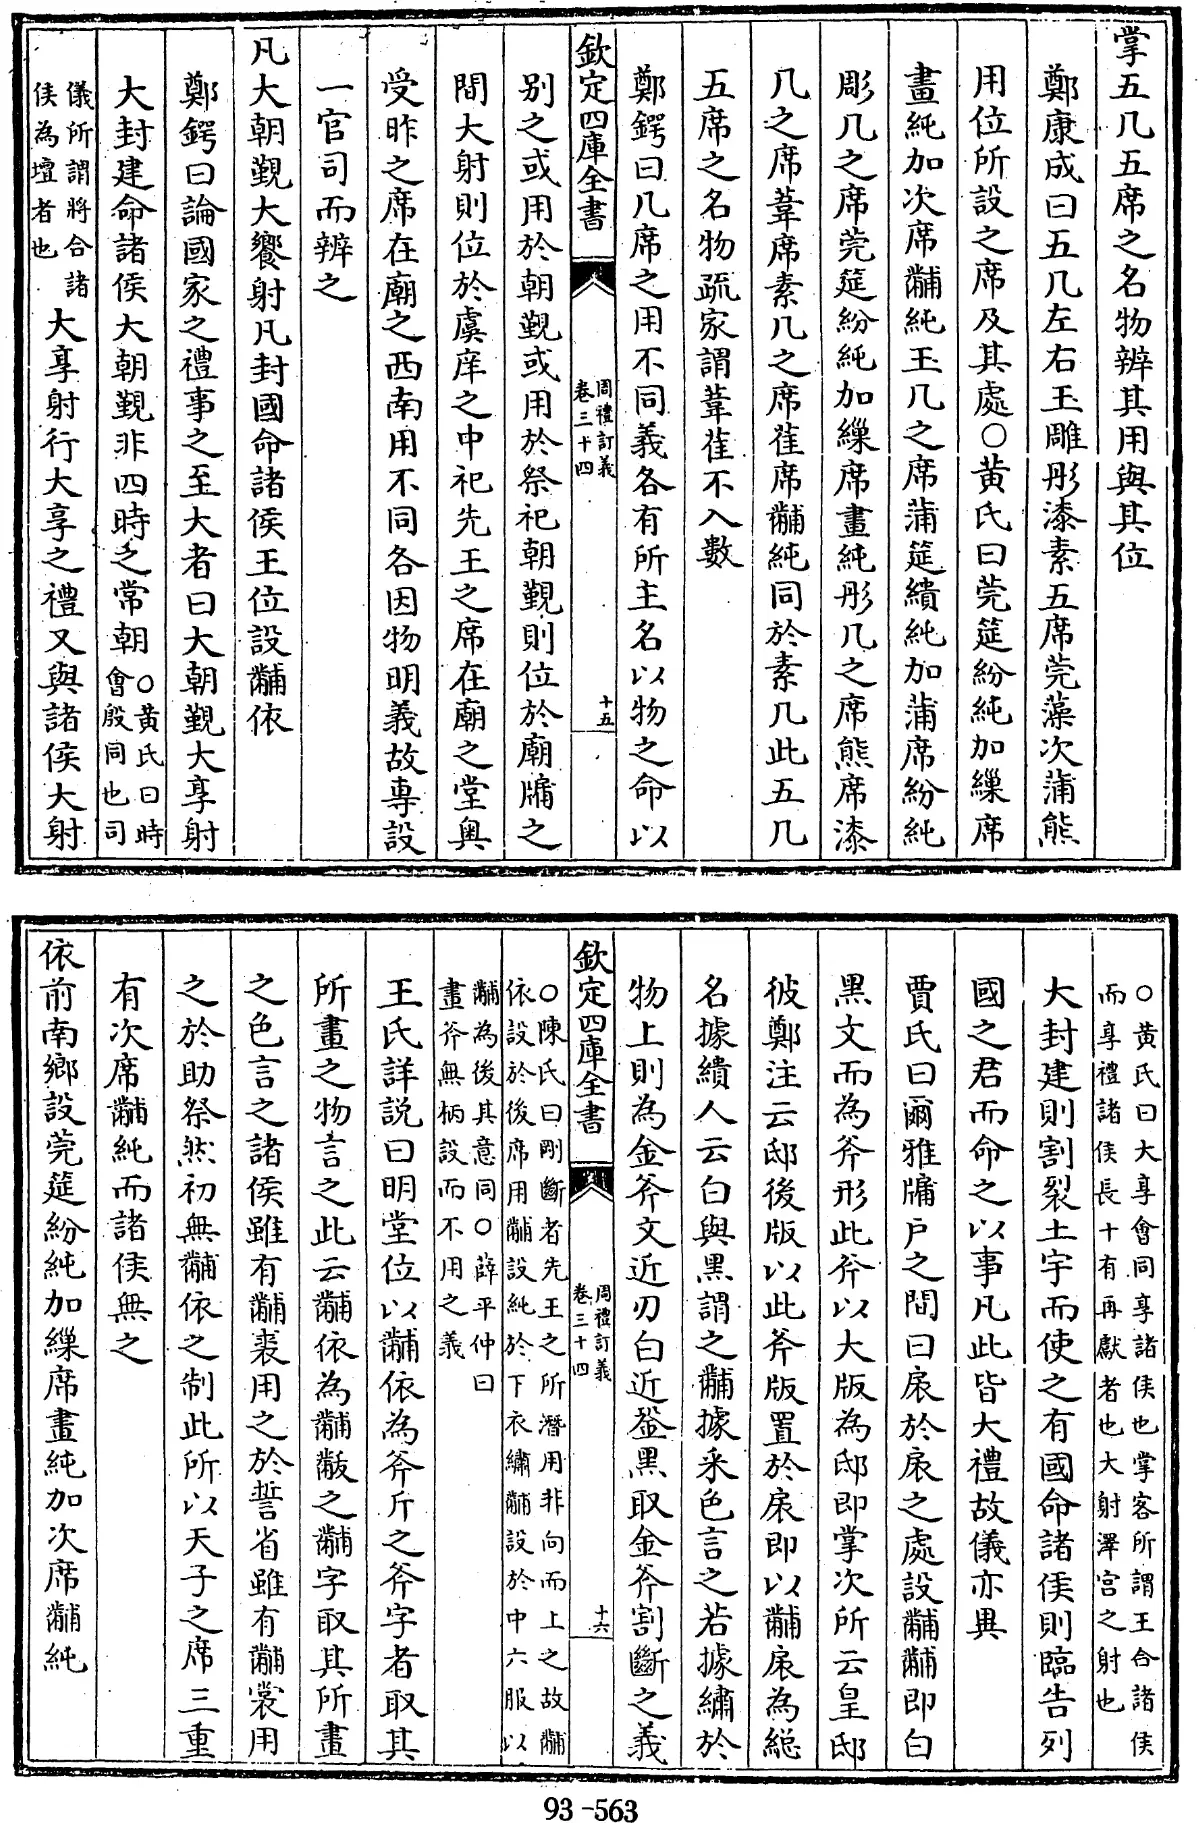 掌五几五席之名物辨其用與其位
鄭康成曰五几左右玉雕彤漆素五席莞藻次蒲熊
用位所設之席及其處○黄氏曰莞筵紛純加繅席
畫純加次席黼純玉几之席蒲筵繢純加蒲席紛純
彫几之席莞筵紛純加繅席畫純彤几之席熊席漆
几之席葦席素几之席萑席黼純同於素几此五几
五席之名物疏家謂葦萑不入數
鄭鍔曰几席之用不同義各有所主名以物之命以
欽定四庫全書
周禮訂義
卷三十四
十五
别之或用於朝覲或用於祭祀朝覲則位於廟牖之
間大射則位於虞庠之中祀先王之席在廟之堂奥
受昨之席在廟之西南用不同各因物明義故專設
一官司而辨之
凡大朝覲大饗射凡封國命諸侯王位設黼依
鄭鍔曰論國家之禮事之至大者曰大朝覲大享射
大封建命諸侯大朝覲非四時之常朝○黄氏曰時
會殷同也司
儀所謂將合諸
侯為壇者也大享射行大享之禮又與諸侯大射
○黄氏曰大享會同享諸侯也掌客所謂王合諸侯
而享禮諸侯長十有再獻者也大射澤宫之射也
大封建則割裂土宇而使之有國命諸侯則臨告列
國之君而命之以事凡此皆大禮故儀亦異
賈氏曰爾雅牖户之間曰扆於扆之處設黼黼即白
黑文而為斧形此斧以大版為邸即掌次所云皇邸
彼鄭注云邸後版以此斧版置於扆即以黼扆為緫
名據繢人云白與黑謂之黼據采色言之若據繡於
物上則為金斧文近刃白近銎黑取金斧割斷之義
欽定四庫全書
周禮訂義
卷三十四
十六
○陳氏曰剛斷者先王之所潛用非向而上之故黼
依設於後席用黼設純於下衣繡黼設於中六服以
黼為後其意同○薛平仲曰
畫斧無柄設而不用之義
王氏詳説曰明堂位以黼依為斧斤之斧字者取其
所畫之物言之此云黼依為黼黻之黼字取其所畫
之色言之諸侯雖有黼裘用之於誓省雖有黼裳用
之於助祭然初無黼依之制此所以天子之席三重
有次席黼純而諸侯無之
依前南鄉設莞筵紛純加繅席畫純加次席黼純
93-563